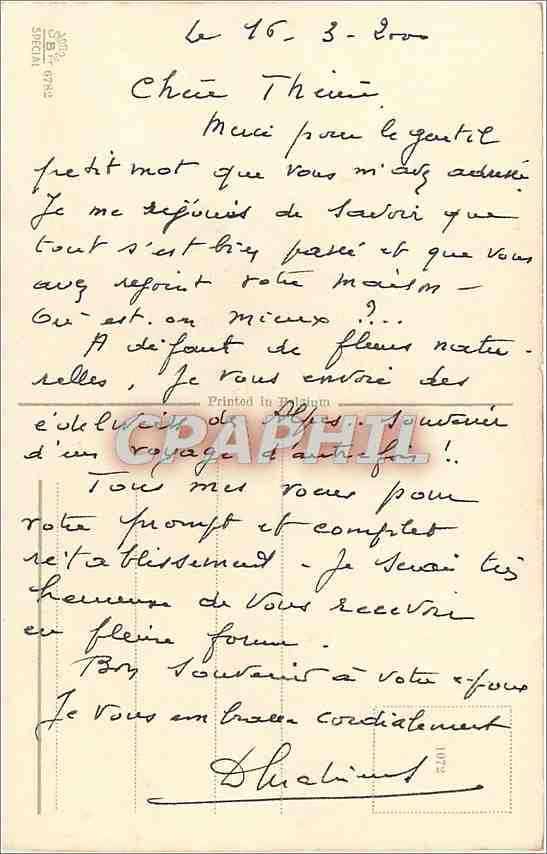 Le 16-3-2000
Chère Thérèse
Merci pour le gentil
petit mot que vous m'avez adressé.
Je me réjouis de savoir que
tout s'est bien passé et que vous
avez rejoint votre maison -
Où est-on mieux ?...
A défaut de fleurs natu-
relles, je vous envoie des
Printed in Belgium
édelweiss de Alpes. souvenir
d'un voyage d'autrefois !.
CPAPHIL
Tous mes voeux pour
votre prompt et complet
rétablissement - Je serai très
heureuse de vous recevoir
en pleine forme.
Bon souvenir à votre époux
Je vous embrasse cordialement
1072
6782
SPECIAL